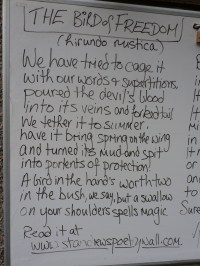 THE BIRD of FREEDOM
(hirundo rustica)
We have tried to cage it
with our words & superstitions,
poured the devil's blood
into its veins and forked tail
We tether it to summer,
have it bring spring on the wing
and turned its mud and spit
into portents of protection!
A bird in the hand's worth two
in the bush, we say, but a swallow
on your shoulder spells magic.
Read it at